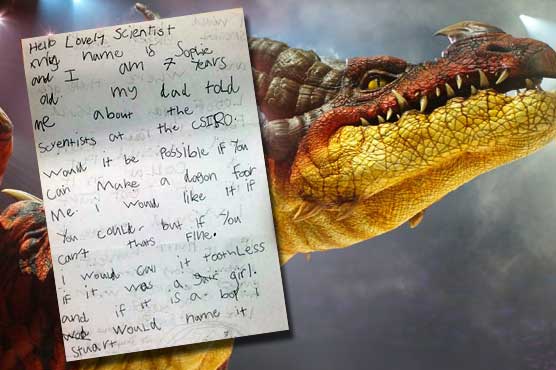 Hello Lovely Scientist
my name is Sophie
and I am 7 years
old. my dad told
me about the
scientists at the CSIRO.
Would it be possible if You
can make a dagon foor
Me. i would like it if
You could. but if You
can't thats Fine.
I would call it toothLess
if it was a girl.
and if it is a boy i
would name it
Stuart